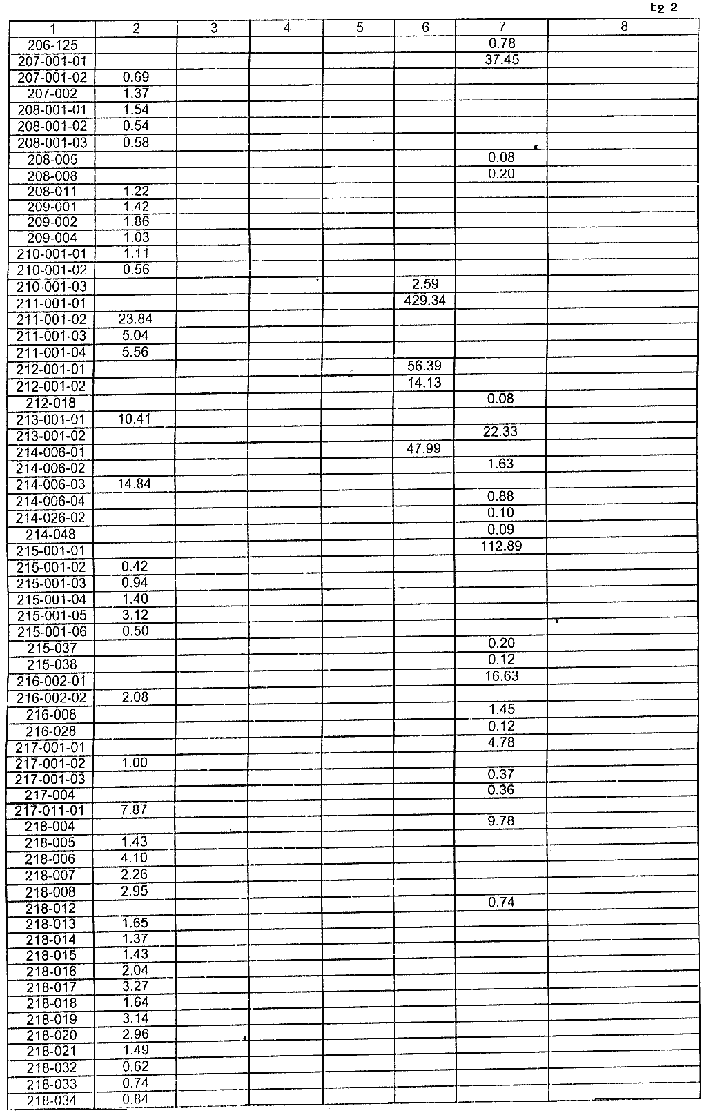 tg 2
1 2 3 4 5 6 7 8
206-125 0.78
207-001-01 37.45
207-001-02 0.69
207-002 1.37
208-001-01 1.54
208-001-02 0.54
208-001-03 0.58
208-005 0.08
208-008 0.20
208-011 1.22
209-001 1.42
209-002 1.86
209-004 1.03
210-001-01 1.11
210-001-02 0.56
210-001-03 2.59
211-001-01 429.34
211-001-02 23.84
211-001-03 5.04
211-001-04 5.56
212-001-01 56.39
212-001-02 14.13
212-018 0.08
213-001-01 10.41
213-001-02 22.33
214-006-01 47.99
214-006-02 1.63
214-006-03 14.84
214-006-04 0.88
214-026-02 0.10
214-048 0.09
215-001-01 112.89
215-001-02 0.42
215-001-03 0.94
215-001-04 1.40
215-001-05 3.12
215-001-06 0.50
215-037 0.20
215-038 0.12
216-002-01 16.63
216-002-02 2.08
216-008 1.45
216-028 0.12
217-001-01 4.78
217-001-02 1.00
217-001-03 0.37
217-004 0.36
217-011-01 7.87
218-004 9.78
218-005 1.43
218-006 4.10
218-007 2.26
218-008 2.95
218-012 0.74
218-013 1.65
218-014 1.37
218-015 1.43
218-016 2.04
218-017 3.27
218-018 1.64
218-019 3.14
218-020 2.96
218-021 1.49
218-032 0.62
218-033 0.74
218-034 0.84